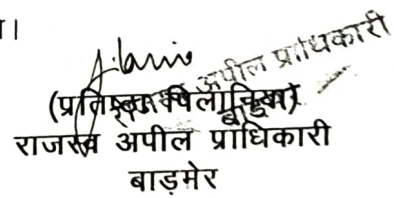 ।
अपील प्राधिकारी
(प्रतिष्ठा पिलानिया)
राजस्व अपील प्राधिकारी
बाड़मेर